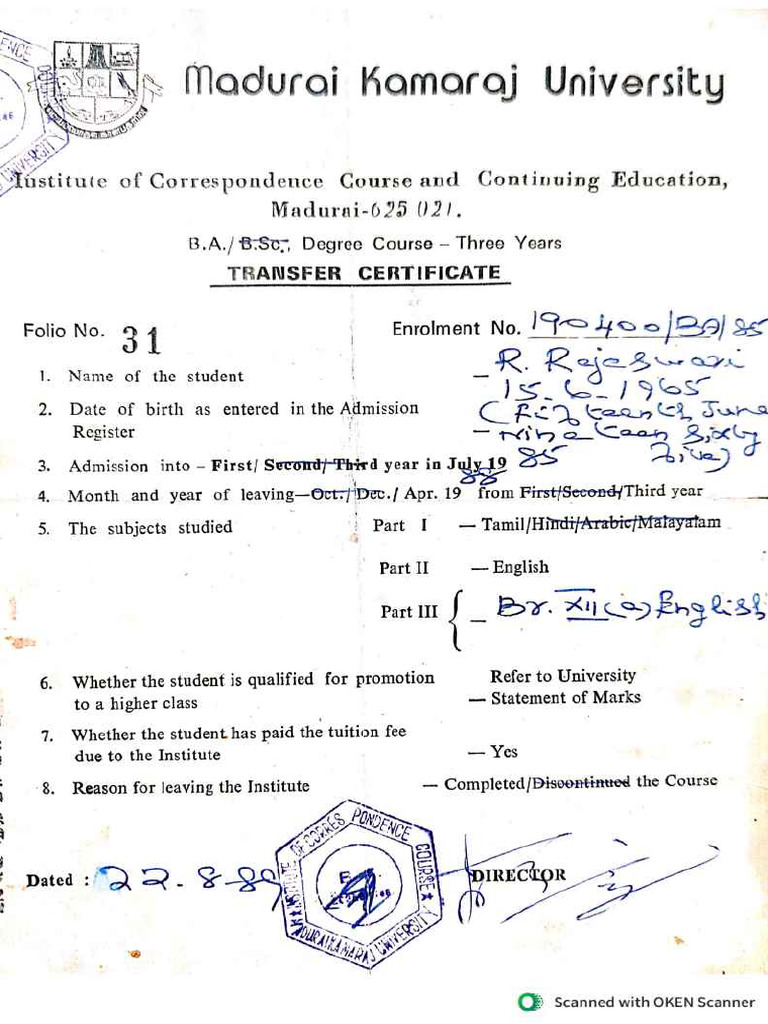 Madurai Kamaraj University
Institute of Correspondence Course and Continuing Education,
Madurai-625 021.
B.A./ B.Sc., Degree Course – Three Years
TRANSFER CERTIFICATE
Folio No. 31
Enrolment No. 190400/BA/85
1. Name of the student – R. Rajeswari
2. Date of birth as entered in the Admission Register – 15-6-1965
(Fifteenth June
Nineteen Sixty
Five)
3. Admission into – First/ Second/ Third year in July 19 85
4. Month and year of leaving—Oct./ Dec./ Apr. 19 88 from First/Second/Third year
5. The subjects studied Part I — Tamil/Hindi/Arabic/Malayalam
Part II — English
Part III { – Br. XII (a) English
6. Whether the student is qualified for promotion to a higher class — Refer to University Statement of Marks
7. Whether the student has paid the tuition fee due to the Institute — Yes
8. Reason for leaving the Institute — Completed/Discontinued the Course
Dated : 22-8-89
INSTITUTE OF CORRES PONDENCE COURSE
MADURAI KAMARAJ UNIVERSITY
DIRECTOR
Scanned with OKEN Scanner